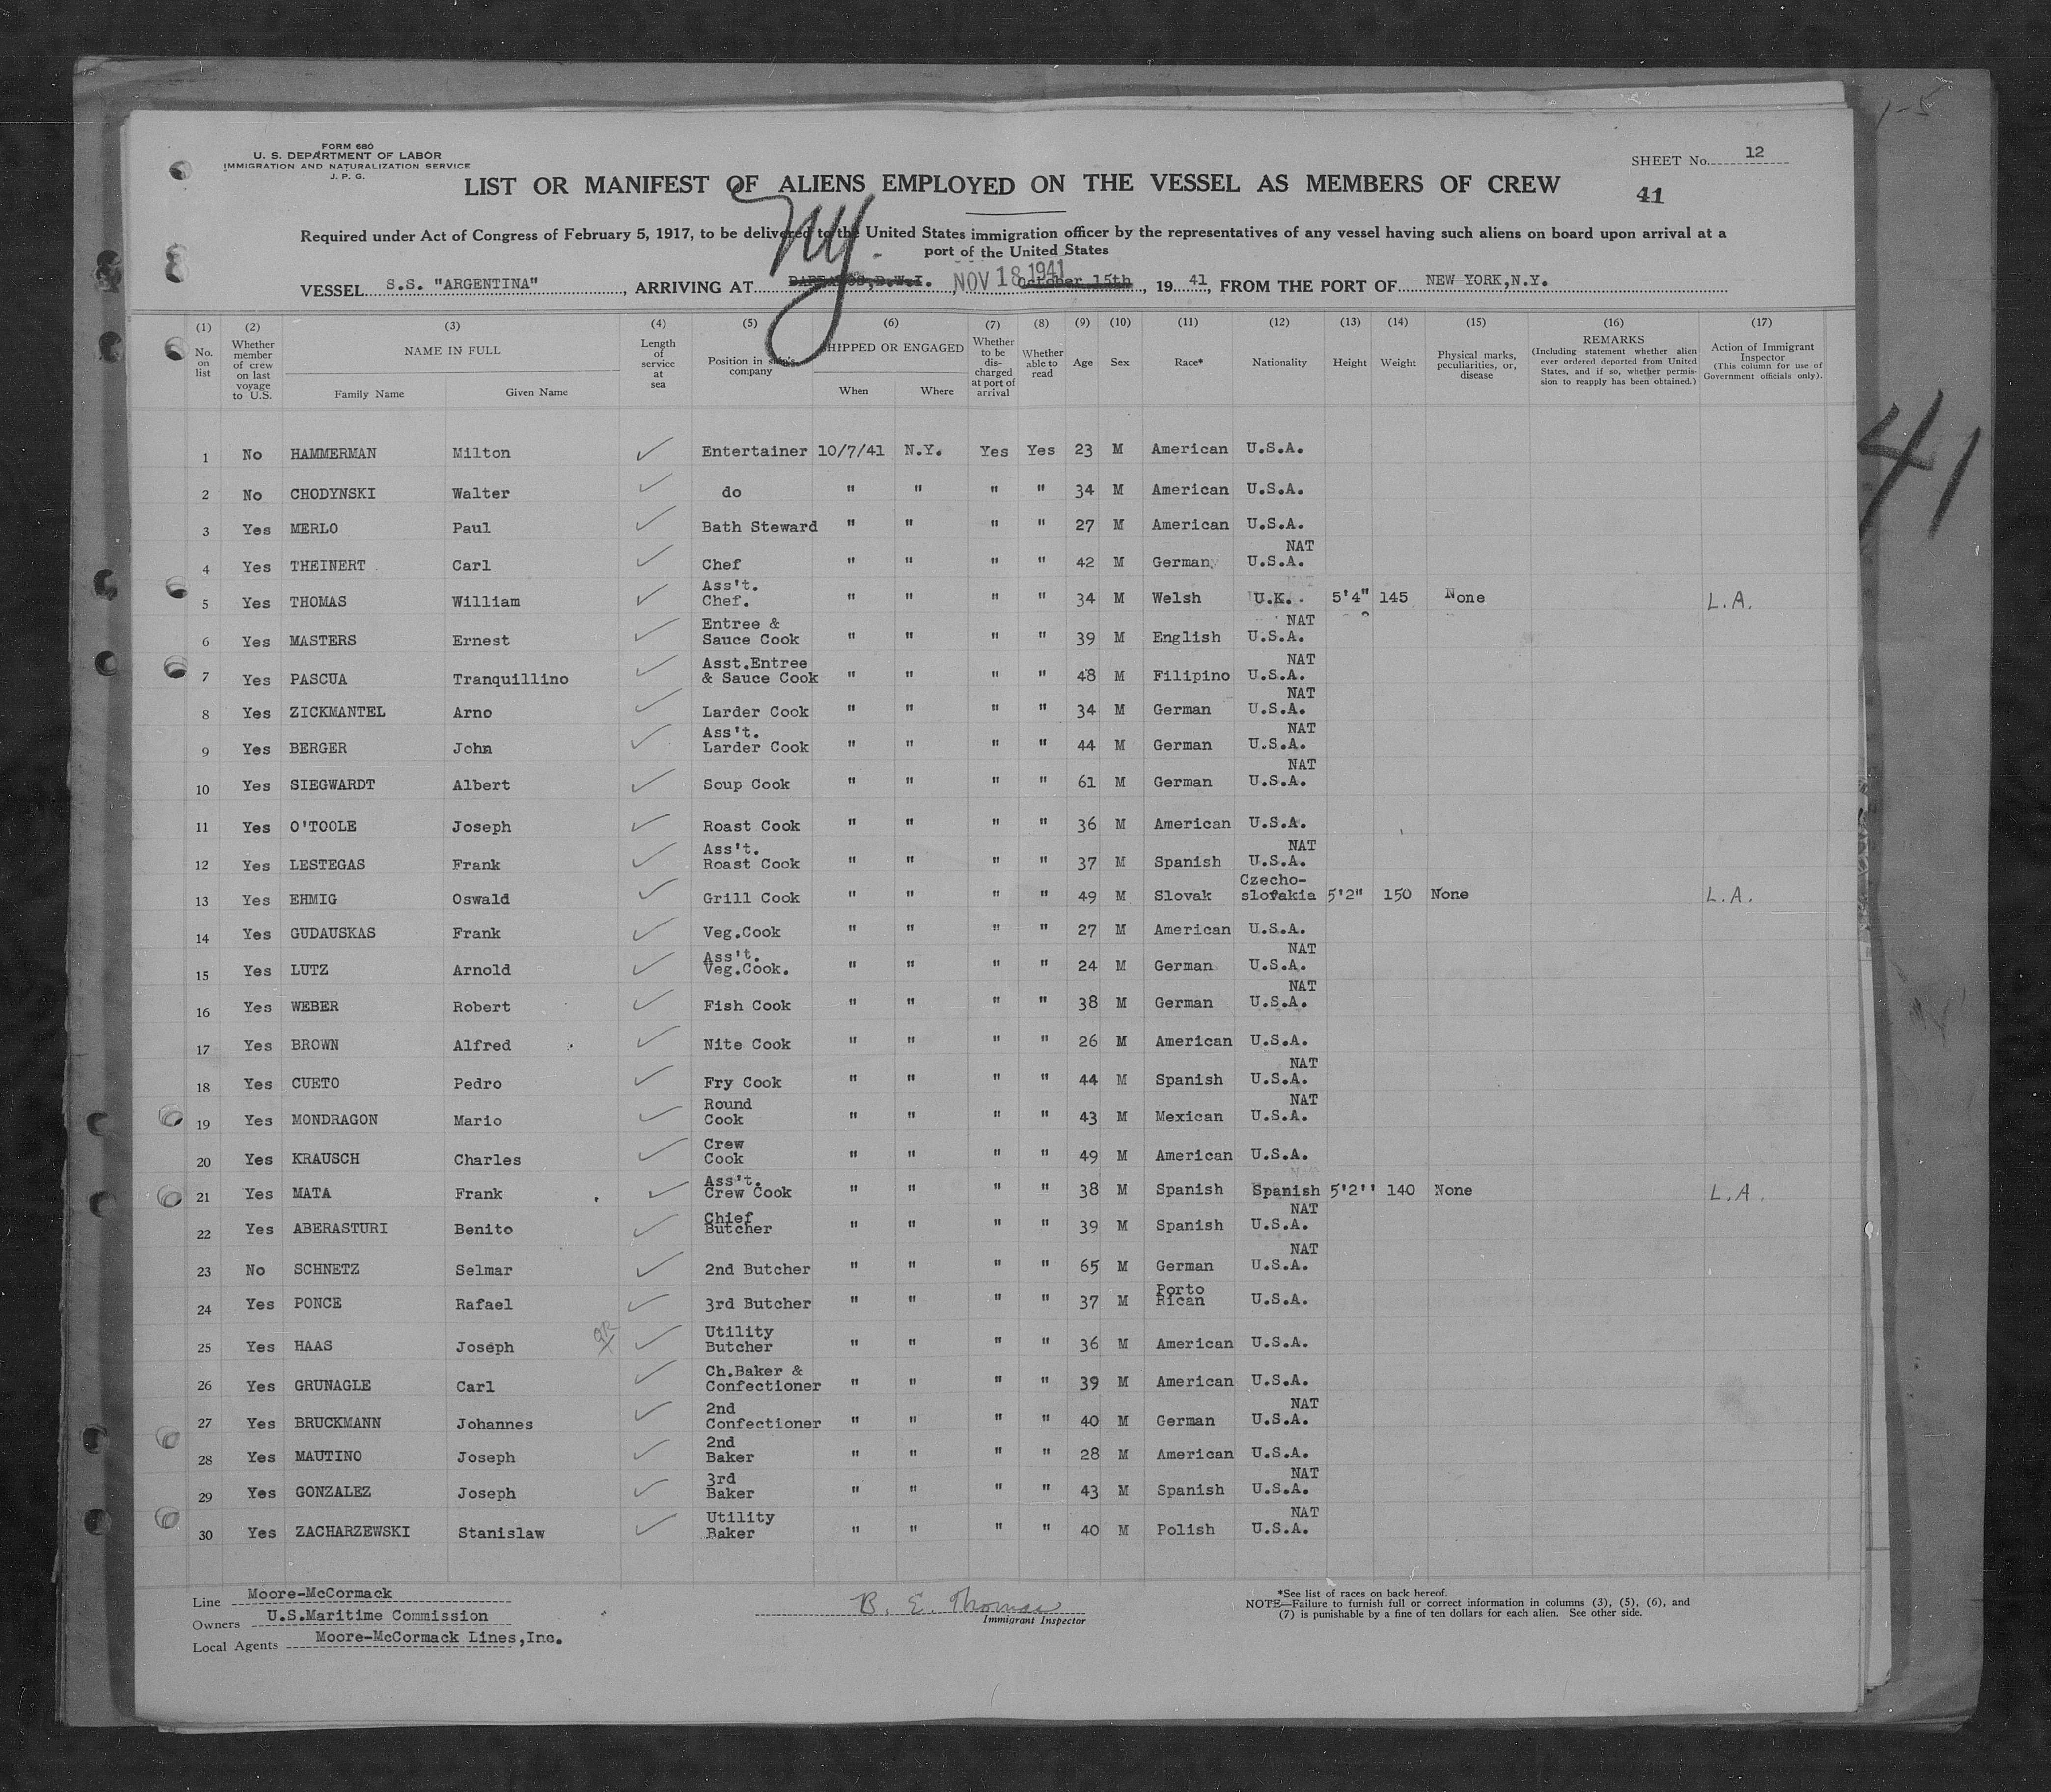 FORM 680
U. S. DEPARTMENT OF LABOR
IMMIGRATION AND NATURALIZATION SERVICE
J. P. G.
SHEET No. 12
LIST OR MANIFEST OF ALIENS EMPLOYED ON THE VESSEL AS MEMBERS OF CREW
41
Required under Act of Congress of February 5, 1917, to be delivered to the United States immigration officer by the representatives of any vessel having such aliens on board upon arrival at a
port of the United States
NY.
VESSEL S.S. "ARGENTINA", ARRIVING AT BARBADOS,B.W.I., NOV 18 1941 October 15th, 19 41, FROM THE PORT OF NEW YORK,N.Y.
(1) (2) (3) (4) (5) (6) (7) (8) (9) (10) (11) (12) (13) (14) (15) (16) (17)
No. on list
Whether member of crew on last voyage to U.S.
NAME IN FULL
Family Name Given Name
Length of service at sea
Position in ship's company
SHIPPED OR ENGAGED
When Where
Whether to be discharged at port of arrival
Whether able to read
Age Sex Race* Nationality Height Weight
Physical marks, peculiarities, or, disease
REMARKS
(Including statement whether alien ever ordered deported from United States, and if so, whether permission to reapply has been obtained.)
Action of Immigrant Inspector
(This column for use of Government officials only).
1 No HAMMERMAN Milton Entertainer 10/7/41 N.Y. Yes Yes 23 M American U.S.A.
2 No CHODYNSKI Walter do " " " " 34 M American U.S.A.
3 Yes MERLO Paul Bath Steward " " " " 27 M American U.S.A.
4 Yes THEINERT Carl Chef " " " " 42 M German NAT U.S.A.
5 Yes THOMAS William Ass't. Chef. " " " " 34 M Welsh U.K. 5'4" 145 None L.A.
6 Yes MASTERS Ernest Entree & Sauce Cook " " " " 39 M English NAT U.S.A.
7 Yes PASCUA Tranquillino Asst.Entree & Sauce Cook " " " " 48 M Filipino NAT U.S.A.
8 Yes ZICKMANTEL Arno Larder Cook " " " " 34 M German NAT U.S.A.
9 Yes BERGER John Ass't. Larder Cook " " " " 44 M German NAT U.S.A.
10 Yes SIEGWARDT Albert Soup Cook " " " " 61 M German NAT U.S.A.
11 Yes O'TOOLE Joseph Roast Cook " " " " 36 M American U.S.A.
12 Yes LESTEGAS Frank Ass't. Roast Cook " " " " 37 M Spanish NAT U.S.A.
13 Yes EHMIG Oswald Grill Cook " " " " 49 M Slovak Czecho-slovakia 5'2" 150 None L.A.
14 Yes GUDAUSKAS Frank Veg.Cook " " " " 27 M American U.S.A.
15 Yes LUTZ Arnold Ass't. Veg.Cook. " " " " 24 M German NAT U.S.A.
16 Yes WEBER Robert Fish Cook " " " " 38 M German NAT U.S.A.
17 Yes BROWN Alfred Nite Cook " " " " 26 M American U.S.A.
18 Yes CUETO Pedro Fry Cook " " " " 44 M Spanish NAT U.S.A.
19 Yes MONDRAGON Mario Round Cook " " " " 43 M Mexican NAT U.S.A.
20 Yes KRAUSCH Charles Crew Cook " " " " 49 M American U.S.A.
21 Yes MATA Frank Ass't. Crew Cook " " " " 38 M Spanish Spanish 5'2'' 140 None L.A.
22 Yes ABERASTURI Benito Chief Butcher " " " " 39 M Spanish NAT U.S.A.
23 No SCHNETZ Selmar 2nd Butcher " " " " 65 M German NAT U.S.A.
24 Yes PONCE Rafael 3rd Butcher " " " " 37 M Porto Rican U.S.A.
25 Yes HAAS Joseph Utility Butcher " " " " 36 M American U.S.A.
26 Yes GRUNAGLE Carl Ch.Baker & Confectioner " " " " 39 M American U.S.A.
27 Yes BRUCKMANN Johannes 2nd Confectioner " " " " 40 M German NAT U.S.A.
28 Yes MAUTINO Joseph 2nd Baker " " " " 28 M American U.S.A.
29 Yes GONZALEZ Joseph 3rd Baker " " " " 43 M Spanish NAT U.S.A.
30 Yes ZACHARZEWSKI Stanislaw Utility Baker " " " " 40 M Polish NAT U.S.A.
41
Line Moore-McCormack
Owners U.S.Maritime Commission
Local Agents Moore-McCormack Lines,Inc.
B. E. Thomas
Immigrant Inspector
*See list of races on back hereof.
NOTE—Failure to furnish full or correct information in columns (3), (5), (6), and
(7) is punishable by a fine of ten dollars for each alien. See other side.